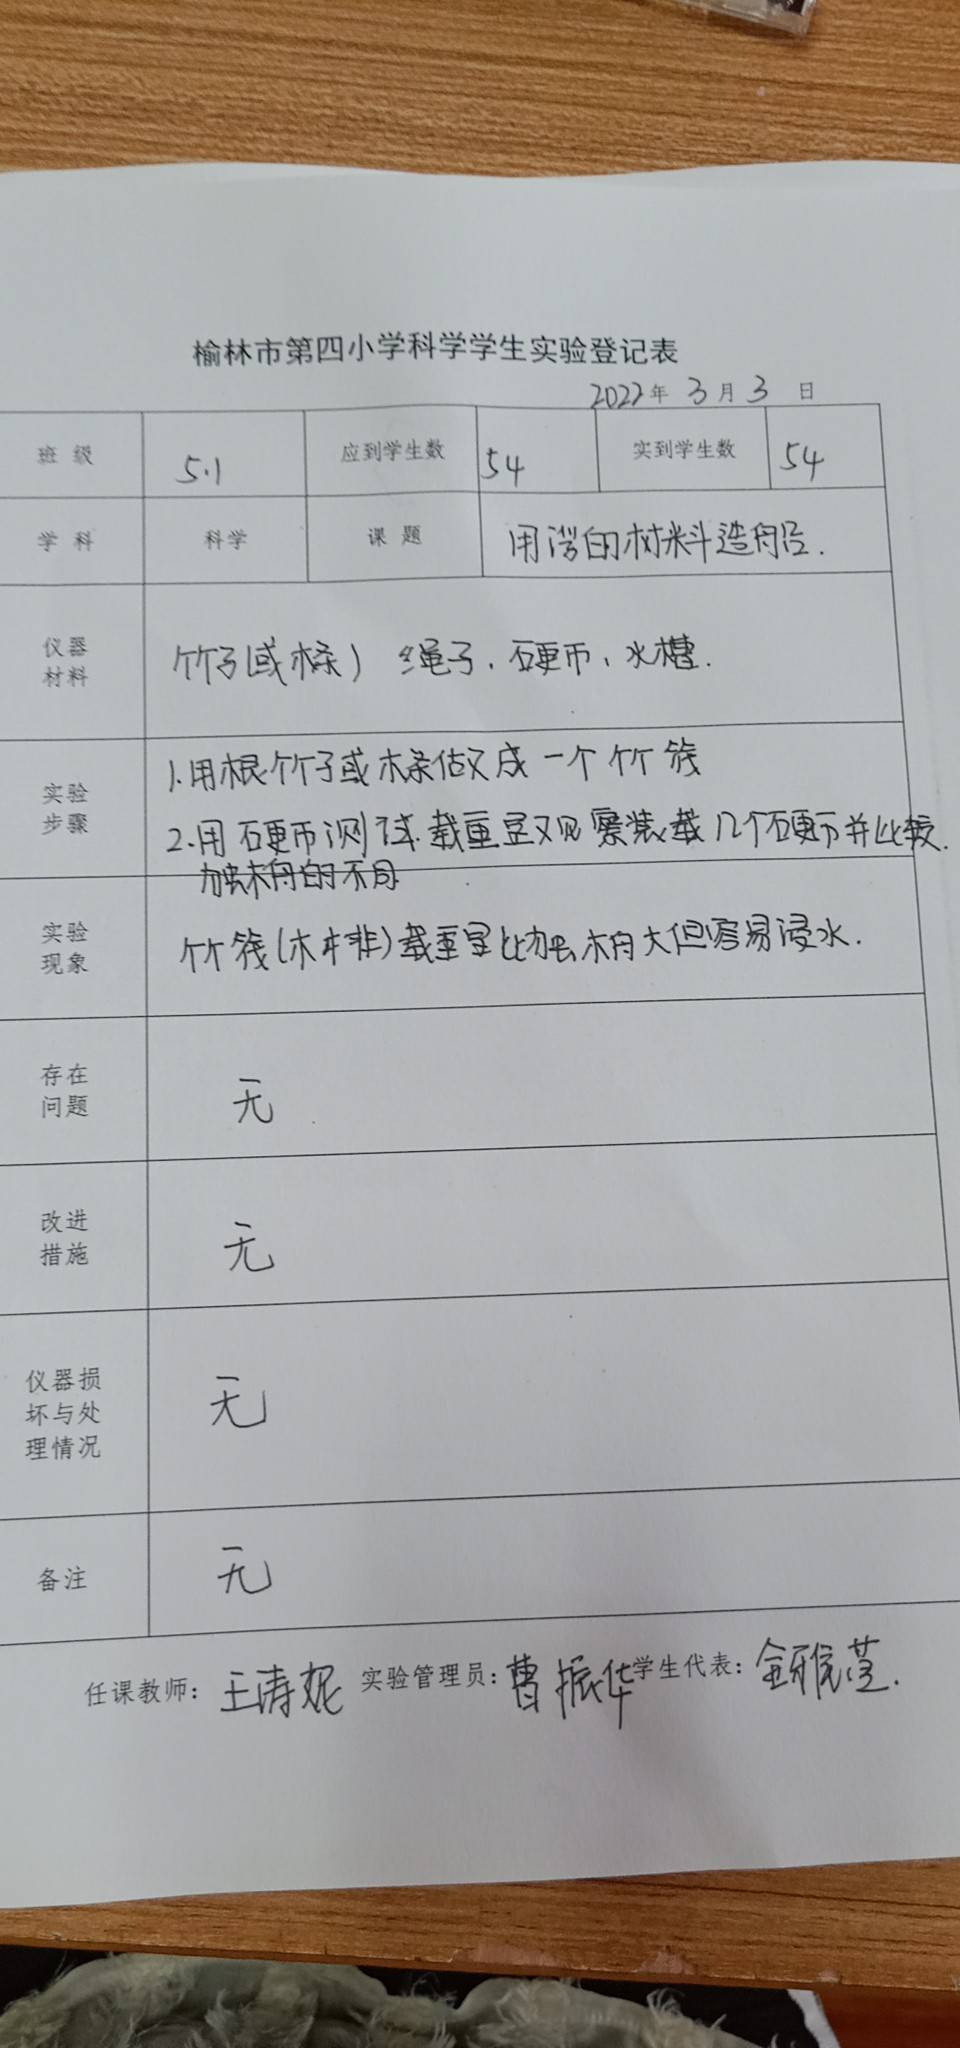 榆林市第四小学科学学生实验登记表
2022年 3月 3 日
班级 5.1 应到学生数 54 实到学生数 54
学科 科学 课题 用浮的材料造船.
仪器
材料
竹子(或木条) 绳子、硬币、水槽.
实验
步骤
1.用根竹子或木条做成一个竹筏
2.用硬币测试载重量观察装载几个硬币并比较
独木舟的不同
实验
现象
竹筏(木排)载重量比独木舟大但容易浸水.
存在
问题
无
改进
措施
无
仪器损
坏与处
理情况
无
备注 无
任课教师: 王涛妮 实验管理员: 曹振华 学生代表: